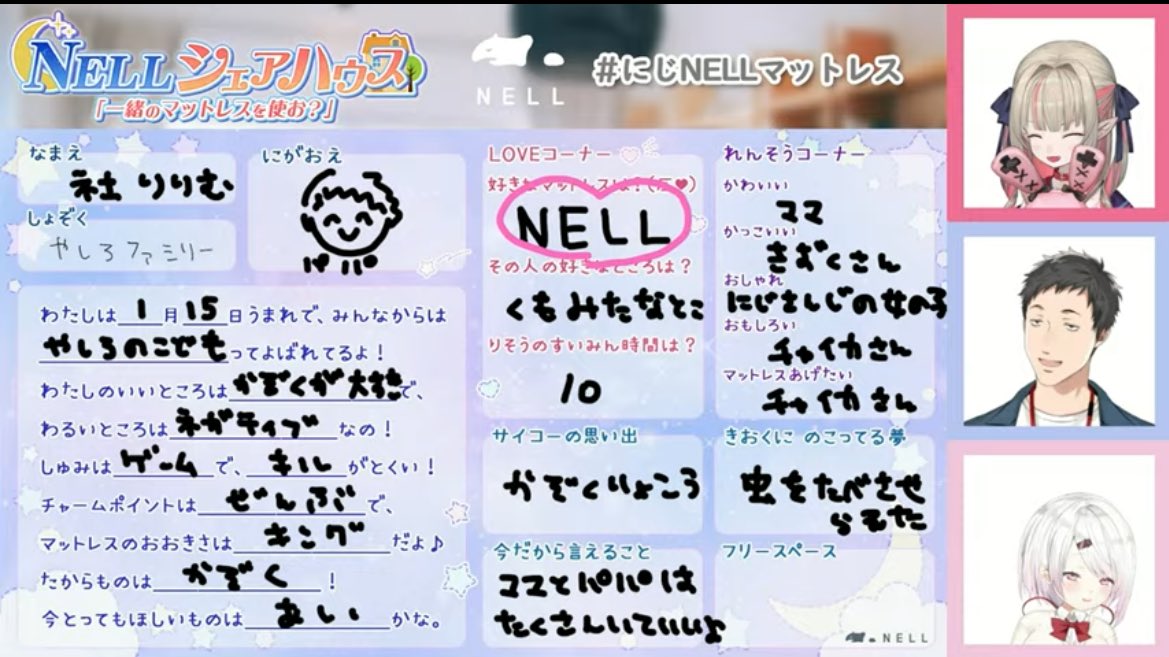 NELLシェアハウス
「一緒のマットレスを使お？」
NELL
#にじNELLマットレス
なまえ
社 りりむ
しょぞく
やしろファミリー
にがおえ
パパ
わたしは 1 月 15 日うまれで、みんなからは
やしろのこども ってよばれてるよ！
わたしのいいところは かぞくが大すき で、
わるいところは ネガティブ なの！
しゅみは ゲーム で、 キル がとくい！
チャームポイントは ぜんぶ で、
マットレスのおおきさは キング だよ♪
たからものは かぞく ！
今とってもほしいものは あい かな。
LOVEコーナー
好きなマットレスは？
NELL
その人の好きなところは？
くもみたなとこ
りそうのすいみん時間は？
10
サイコーの思い出
かぞくりょこう
今だから言えること
ママとパパは
たくさんいていいよ
れんそうコーナー
かわいい
ママ
かっこいい
きずくさん
おしゃれ
にじさんじの女の子
おもしろい
チャイカさん
マットレスあげたい
チャイカさん
きおくに のこってる夢
虫をたべさせ
られた
フリースペース
NELL